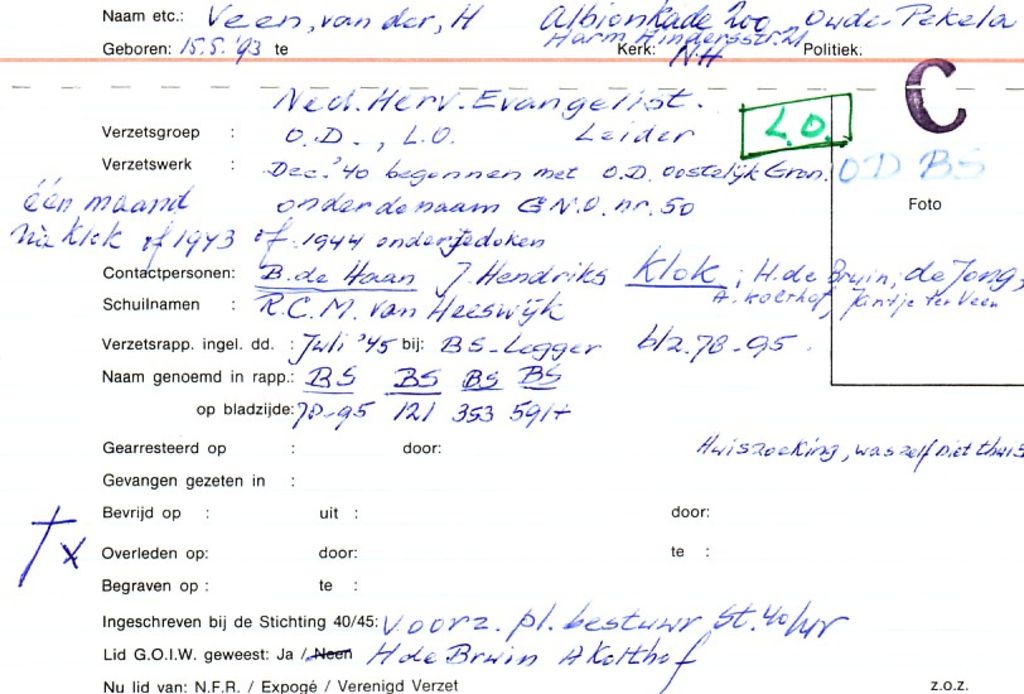 Naam etc.: Veen, van der, H Albionkade 200 Oude-Pekela
Harm Hindersstr. 21
Geboren: 15.5.'93 te Kerk: NH Politiek:
Ned. Herv. Evangelist.
C
Verzetsgroep : O.D., L.O. Leider L.O.
Verzetswerk : Dec. '40 begonnen met O.D. oostelijk Gron. OD BS
één maand onder de naam G.N.O. nr. 50 Foto
na Klok of 1943 of 1944 ondergedoken
Contactpersonen: B. de Haan J. Hendriks Klok ; H. de Bruin; de Jong,
A. Kolthof, Jantje ter Veen
Schuilnamen : R.C.M. van Heeswijk
Verzetsrapp. ingel. dd. : Juli '45 bij: BS-Legger blz. 78-95.
Naam genoemd in rapp.: BS BS BS BS
op bladzijde: 78-95 121 353 591+
Gearresteerd op : door: Huiszoeking, was zelf niet thuis
Gevangen gezeten in :
Bevrijd op : uit : door:
† x
Overleden op: door: te :
Begraven op : te :
Ingeschreven bij de Stichting 40/45: Voorz. pl. bestuur St. 40/45
Lid G.O.I.W. geweest: Ja / Neen H de Bruin A Kolthof
Nu lid van: N.F.R. / Expogé / Verenigd Verzet z.o.z.